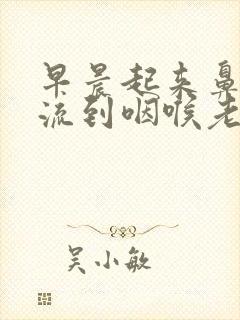 早晨起来鼻
流到咽喉老
吴小敏